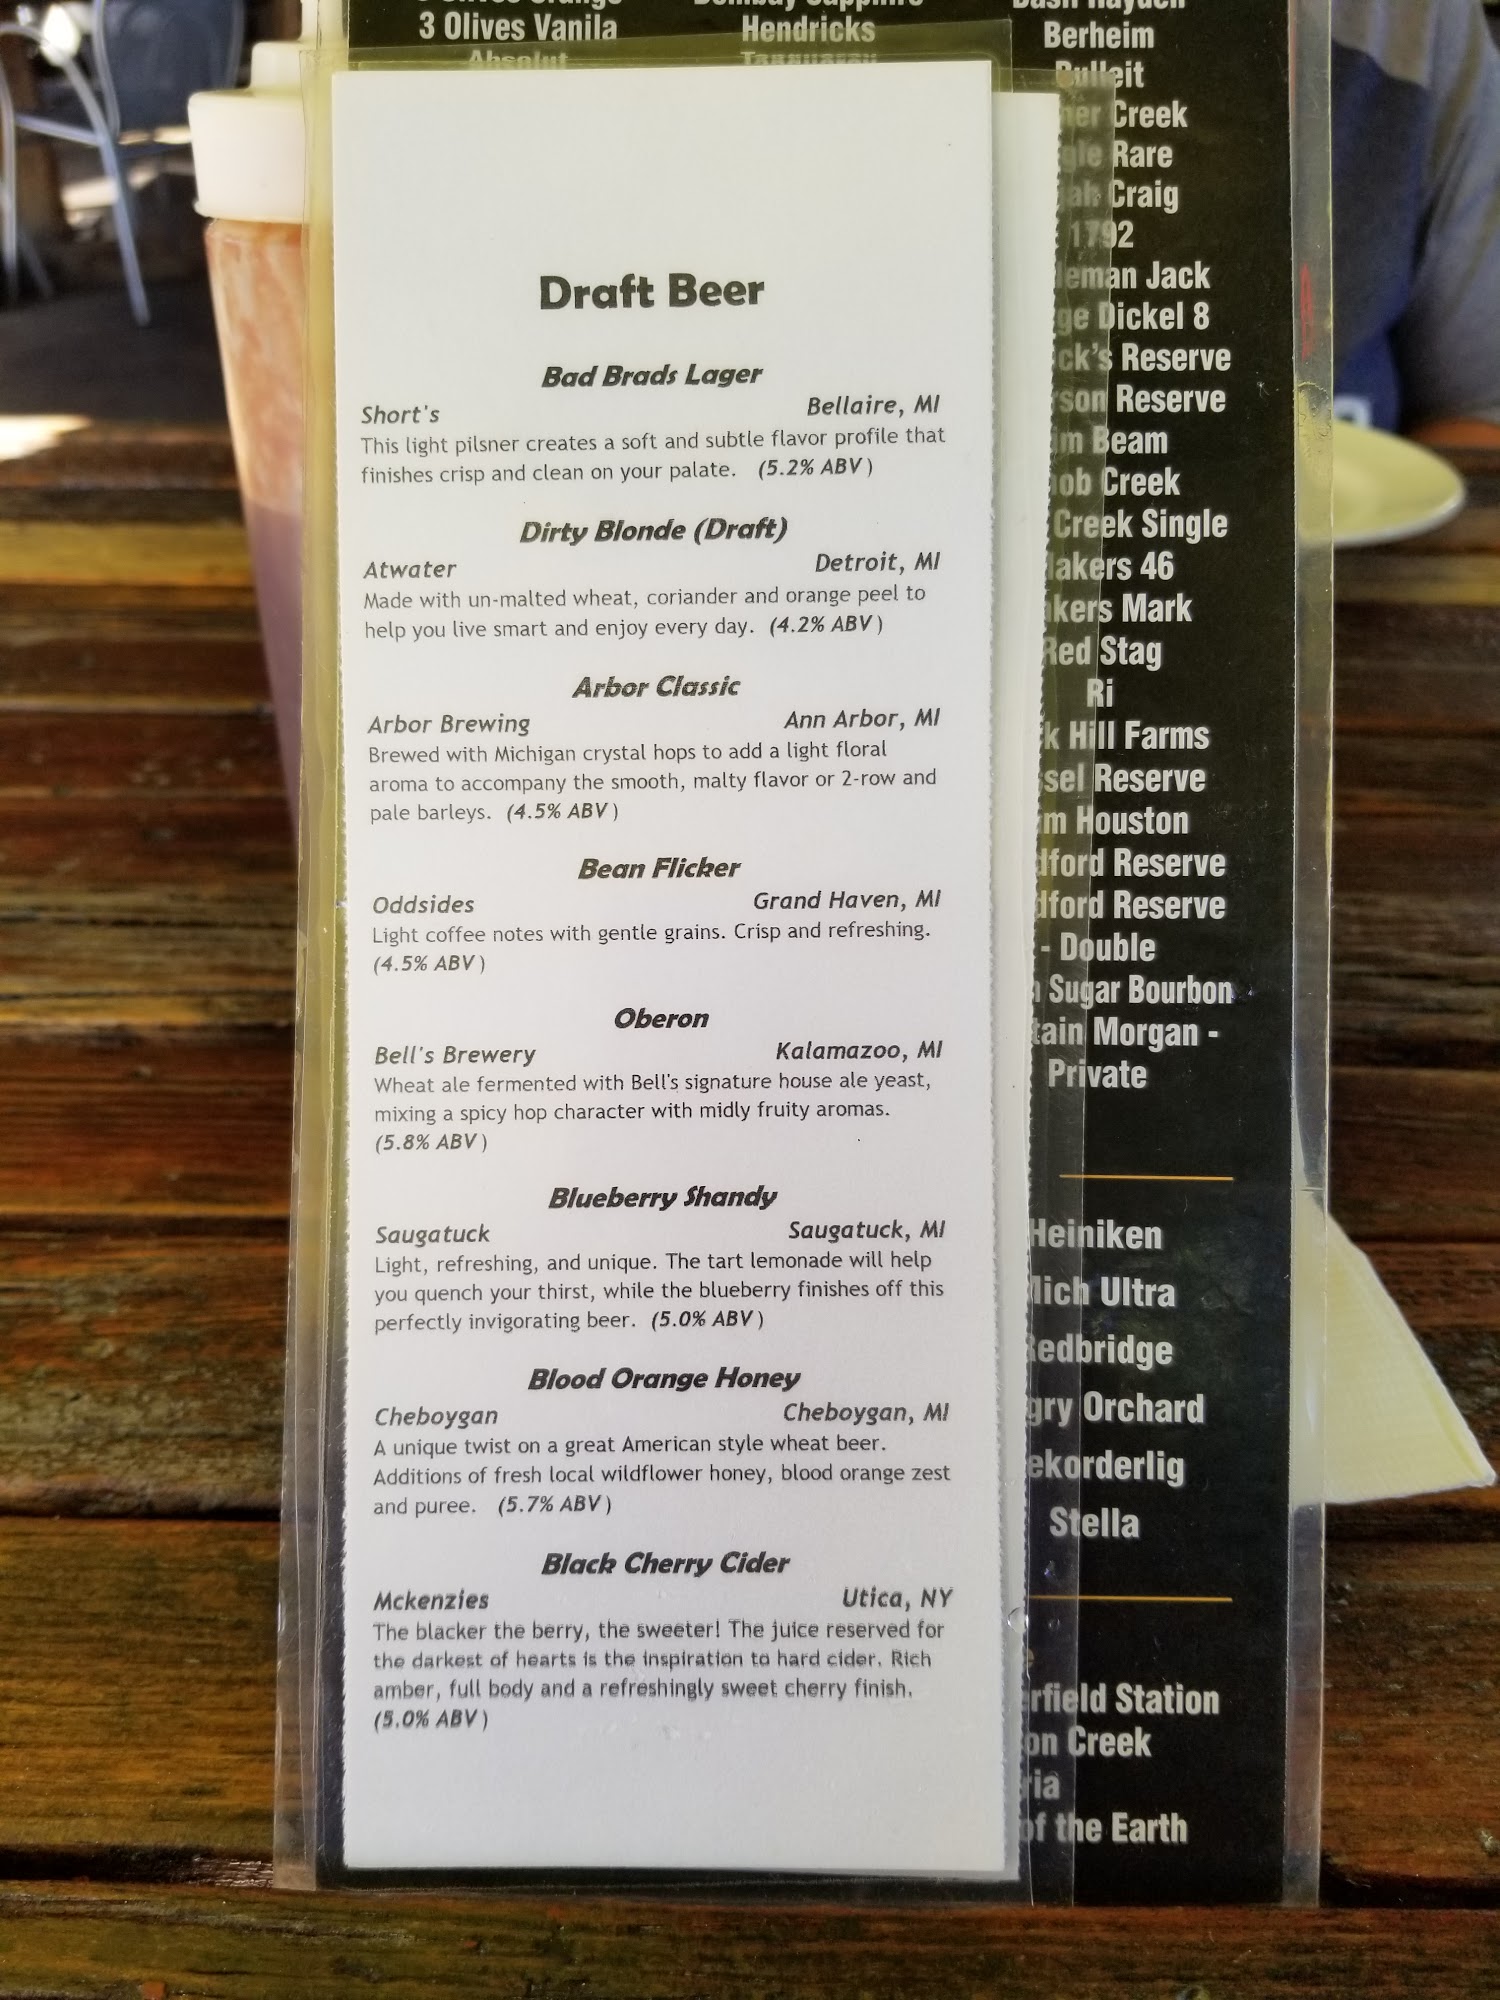 3 Olives Vanila
Hendricks
Berheim
Absolut
Draft Beer
Bad Brads Lager
Short's Bellaire, MI
This light pilsner creates a soft and subtle flavor profile that
finishes crisp and clean on your palate. (5.2% ABV)
Dirty Blonde (Draft)
Atwater Detroit, MI
Made with un-malted wheat, coriander and orange peel to
help you live smart and enjoy every day. (4.2% ABV)
Arbor Classic
Arbor Brewing Ann Arbor, MI
Brewed with Michigan crystal hops to add a light floral
aroma to accompany the smooth, malty flavor or 2-row and
pale barleys. (4.5% ABV)
Bean Flicker
Oddsides Grand Haven, MI
Light coffee notes with gentle grains. Crisp and refreshing.
(4.5% ABV)
Oberon
Bell's Brewery Kalamazoo, MI
Wheat ale fermented with Bell's signature house ale yeast,
mixing a spicy hop character with midly fruity aromas.
(5.8% ABV)
Blueberry Shandy
Saugatuck Saugatuck, MI
Light, refreshing, and unique. The tart lemonade will help
you quench your thirst, while the blueberry finishes off this
perfectly invigorating beer. (5.0% ABV)
Blood Orange Honey
Cheboygan Cheboygan, MI
A unique twist on a great American style wheat beer.
Additions of fresh local wildflower honey, blood orange zest
and puree. (5.7% ABV)
Black Cherry Cider
Mckenzies Utica, NY
The blacker the berry, the sweeter! The juice reserved for
the darkest of hearts is the inspiration to hard cider. Rich
amber, full body and a refreshingly sweet cherry finish.
(5.0% ABV)
Bulleit
Creek
Rare
Craig
1792
Jack
Dickel 8
Reserve
Reserve
Beam
Creek
Creek Single
46
Mark
Red Stag
Ri
Hill Farms
Reserve
Houston
Reserve
Reserve
- Double
Sugar Bourbon
Morgan -
Private
Heiniken
Ultra
Redbridge
Orchard
Stella
Station
Creek
of the Earth